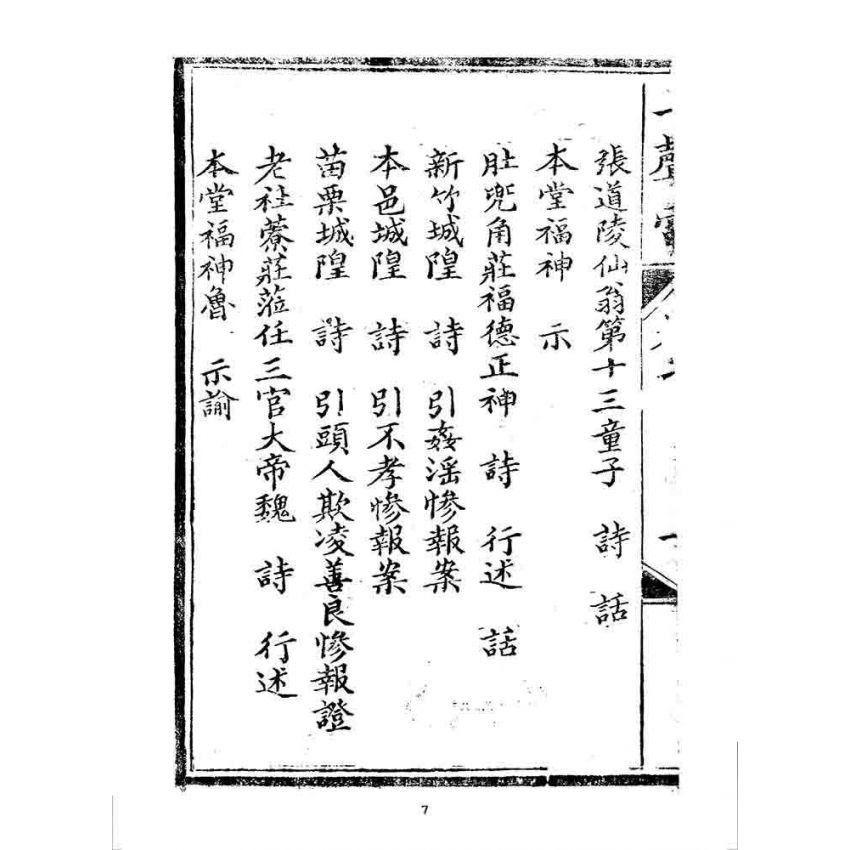 張道陵仙翁第十三童子　詩　話
本堂福神　示
肚兜角莊福德正神　詩　行述　話
新竹城隍　詩　引姦淫慘報案
本邑城隍　詩　引不孝慘報案
苗栗城隍　詩　引頭人欺凌善良慘報證
老社藔莊蒞任三官大帝魏　詩　行述
本堂福神魯　示諭
7